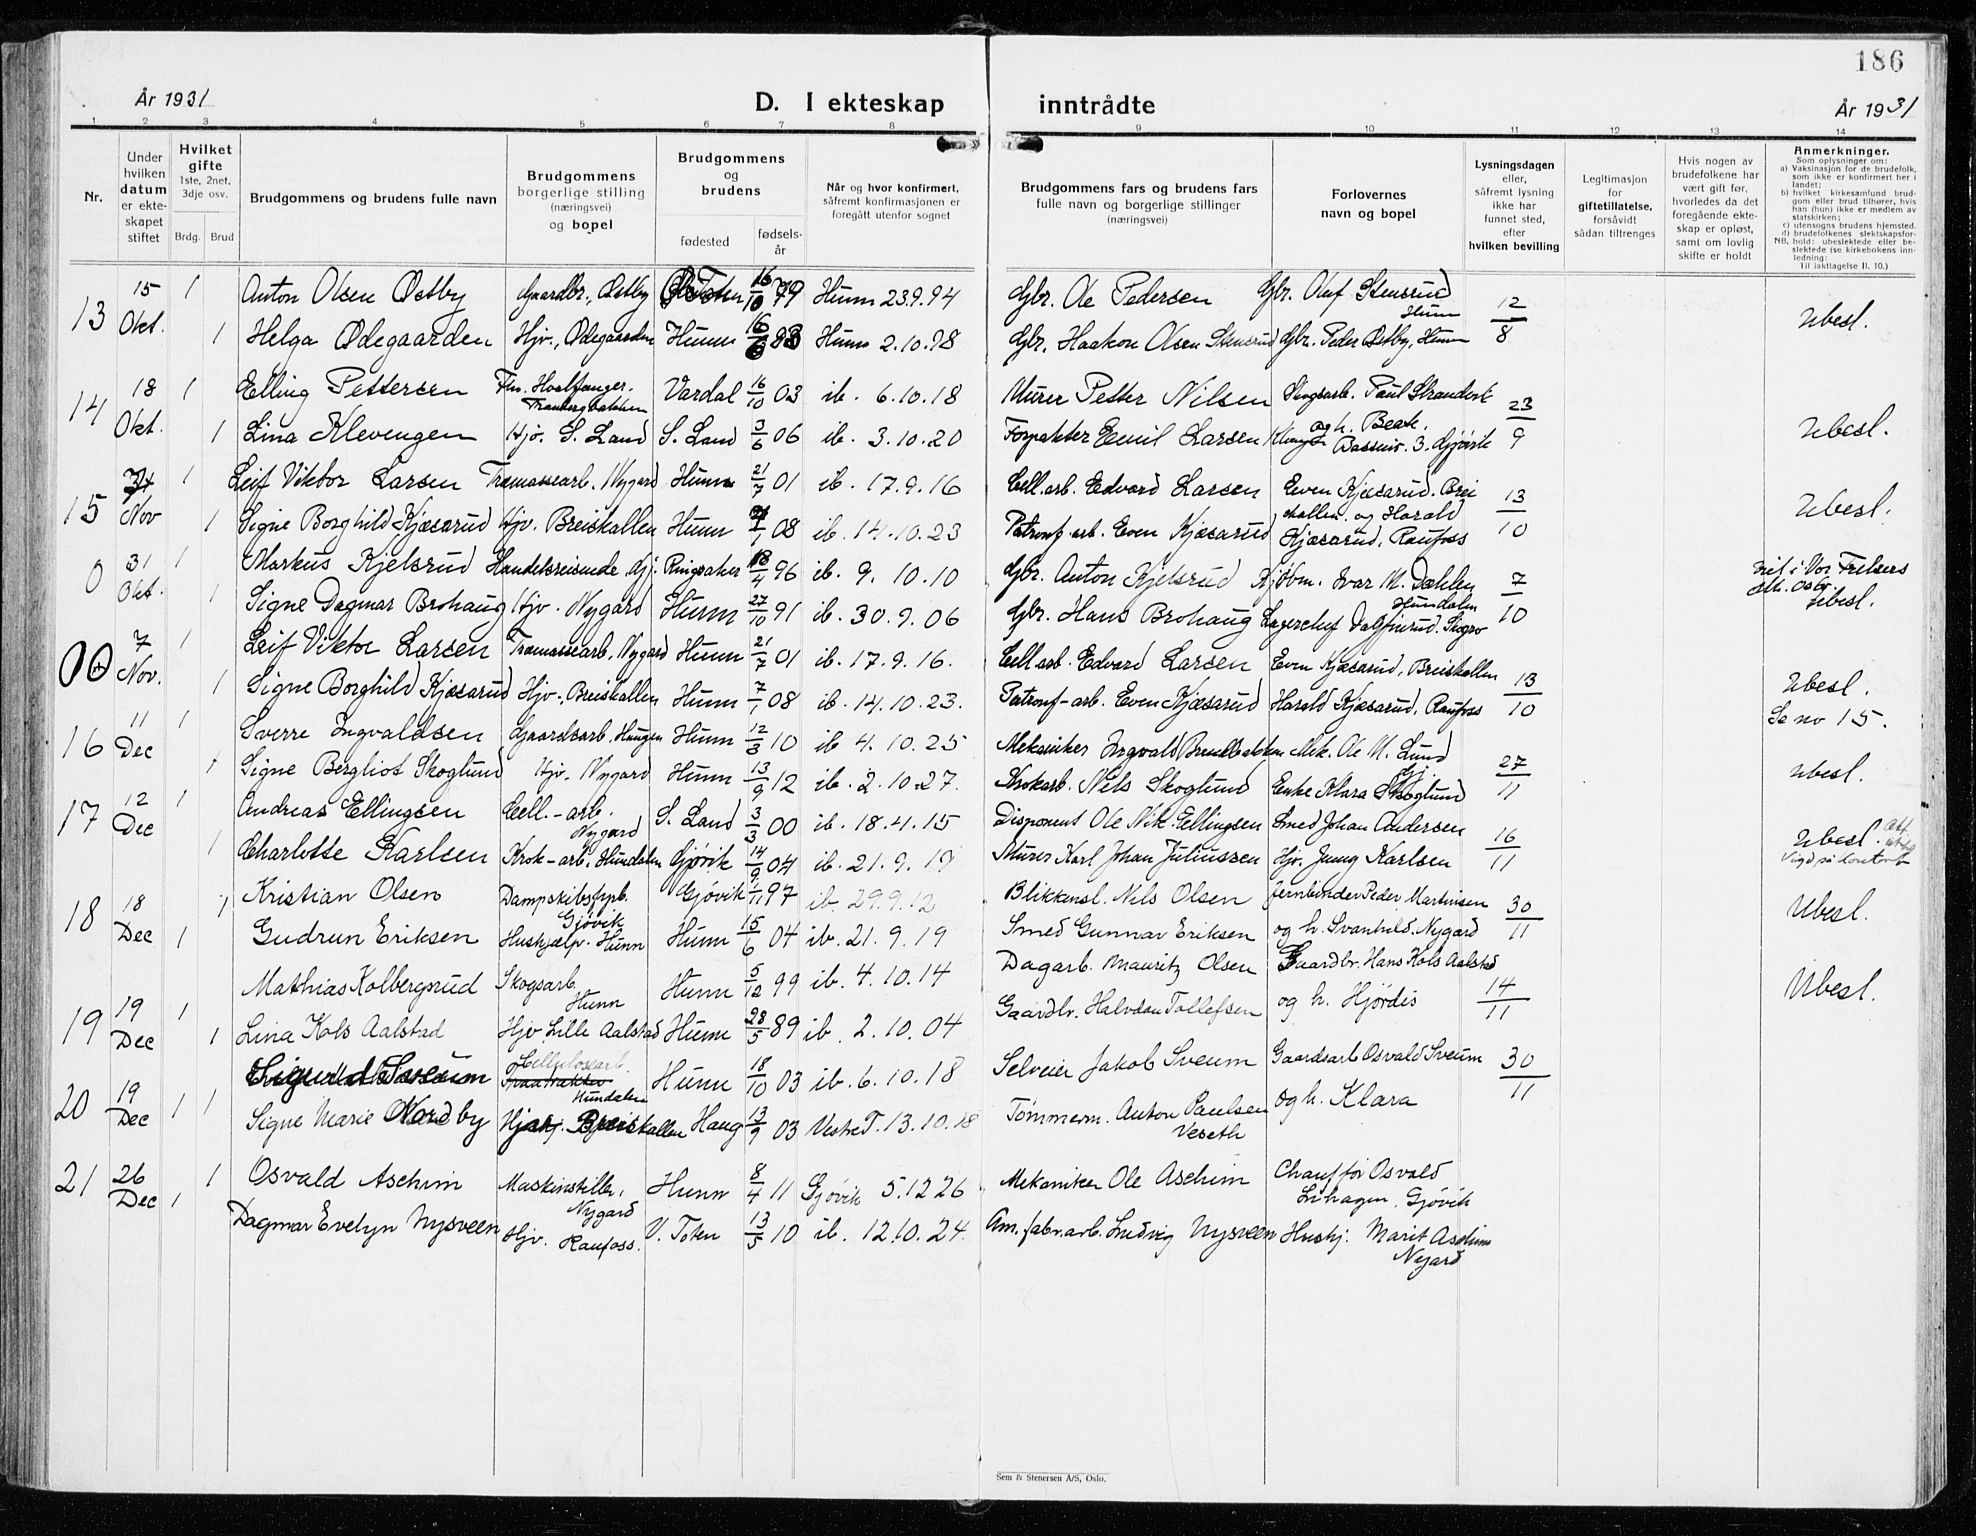 186
År 1931
D. I ekteskap inntrådte
År 1931
1 2 3 4 5 6 7 8 9 10 11 12 13 14
Nr.
Under hvilken datum er ekteskapet stiftet
Hvilket gifte 1ste, 2net, 3dje osv.
Brdg. Brud
Brudgommens og brudens fulle navn
Brudgommens borgerlige stilling (næringsvei) og bopel
Brudgommens og brudens
fødested
fødselsår
Når og hvor konfirmert, såfremt konfirmasjonen er foregått utenfor sognet
Brudgommens fars og brudens fars fulle navn og borgerlige stillinger (næringsvei)
Forlovernes navn og bopel
Lysningsdagen eller, såfremt lysning ikke har funnet sted, efter hvilken bevilling
Legitimasjon for giftetillatelse, forsåvidt sådan tiltrenges
Hvis nogen av brudefolkene har vært gift før, hvorledes da det foregående ekteskap er opløst, samt om lovlig skifte er holdt
Anmerkninger.
Som oplysninger om:
a) Vaksinasjon for de brudefolk, som ikke er konfirmert her i landet;
b) hvilket kirkesamfund brudgom eller brud tilhører, hvis han (hun) ikke er medlem av statskirken;
c) utensogns brudens hjemsted.
d) brudefolkenes slektskapsforhold: ubeslektede eller beslektede (se kirkebokens innledning:
NB.
Til iakttagelse II. 10.)
13 15 Okt. 1 Anton Olsen Østby Gaardbr., Østby Ø. Toten 16/10 79 Hunn 23.9.94 Gbr. Ole Pedersen Gbr. Oluf Stensrud Hunn 12/8 Ubesl.
1 Helga Ødegaarden Hjv., Ødegaarden Hunn 16/6 83 Hunn 2.10.98 Gbr. Haakon Olsen Stensrud Gbr. Peder Østby, Hunn
14 18 Okt. 1 Elling Pettersen Hvalfanger. Tranbergbakken Vardal 16/10 03 ib. 6.10.18 Murer Petter Nilsen Skogsarb. Paul Strandert 23/9 Ubesl.
1 Lina Klevengen Hjv. S. Land S. Land 3/6 06 ib. 3.10.20 Forpakter Emil Larsen Klevgen og h. Beate. 3. Gjøvik
15 Nov 1 Leif Viktor Larsen Træmassearb. Nygard Hunn 21/7 01 ib. 17.9.16 Cell.arb. Edvard Larsen Even Kjæsarud. Brei 13/10 Ubesl.
1 Signe Borghild Kjæsarud Hjv. Breiskallen Hunn 08 ib. 14.10.23 Patronf-arb. Even Kjæsarud skallen. og Harald Kjæsarud, Raufoss
0 31 Okt. 1 Markus Kjelsrud Handelsreisende, Gj: Ringsaker 18/4 96 ib. 9.10.10 Gbr. Anton Kjelsrud Kjøbm. Ivar M. Dæhlen Hundalen 7/10 Vor Frelsers Ubesl.
1 Signe Dagmar Brohaug Hjv. Nygard Hunn 27/10 91 ib. 30.9.06 Gbr. Hans Brohaug Lagerchef
00 7 Nov. 1 Leif Viktor Larsen Træmassearb. Nygard Hunn 21/7 01 ib. 17.9.16. Cell.arb. Edvard Larsen Even Kjæsarud, Breiskallen 13/10 Ubesl.
1 Signe Borghild Kjæsarud Hjv., Breiskallen Hunn 7/1 08 ib. 14.10.23. Patronf-arb. Even Kjæsarud Harald Kjæsarud, Raufoss Se no 15.
16 11 Dec 1 Sverre Ingvaldsen Gaardsarb. Haugen Hunn 12/3 10 ib 4.10.25 Mekaniker Ingvald Mek. Ole M. Lund Gj. 27/11 Ubesl.
1 Signe Bergliot Skoglund Hjv. Nygard Hunn 13/9 12 ib. 2.10.27. Krokarb. Nils Skoglund Enke Klara Skoglund
17 12 Dec 1 Andreas Ellingsen Cell.-arb. Nygard S. Land 3/3 00 ib. 18.4.15 Disponent Ole Nik. Ellingsen Smed Johan Andersen 16/11 Ubesl. Vigd på kontoret
1 Charlotte Karlsen Krok-arb. Hundalen Gjøvik 14/9 04 ib. 21.9.19 Murer Karl Johan Juliussen Hjv. Jenny Karlsen
18 18 Dec 1 Kristian Olsen Dampskibsfyrb. Gjøvik Gjøvik 9/11 97 ib. 29.9.12 Blikkensl. Nils Olsen Jernbinder Peder Martinsen 30/11 Ubesl.
1 Gudrun Eriksen Hushjælp. Hunn Hunn 15/6 04 ib. 21.9.19 Smed Gunnar Eriksen og h. Svanhild. Nygard
19 19 Dec 1 Mathias Kolbergsrud Skogsarb. Hunn Hunn 5/12 99 ib. 4.10.14 Dagarb. Mauritz Olsen Gaardbr. Hans Kols Aalstad 14/11 Ubesl.
1 Lina Kols Aalstad Hjv. Lille Aalstad Hunn 28/5 89 ib. 2.10.04 Gaardbr. Halvdan Tollefsen og h. Hjørdis
20 19 Dec 1 1 Sigurd Sveum Cellulosearb. Hundalen Hunn 18/10 03 ib. 6.10.18 Selveier Jakob Sveum Gaardsarb Osvald Sveum 30/11
Signe Marie Nordby Breiskallen Haug 13/9 03 Vestre T. 13.10.18 Tømmerm. Anton Paulsen Veseth og h. Klara
21 26 Dec 1 1 Osvald Aschim Maskinstiller, Nygard Hunn 8/4 11 Gjøvik 5.12 26 Mekaniker Ole Aschim Chauffør Osvald Lihagen, Gjøvik
Dagmar Evelyn Nysveen Hjv. Raufoss. V. Toten 13/5 10 ib. 12.10.24. Am.fabr.arb. Ludvig Nysveen Hushj. Marit Aschim Nygard
Sem & Stenersen A/S, Oslo.